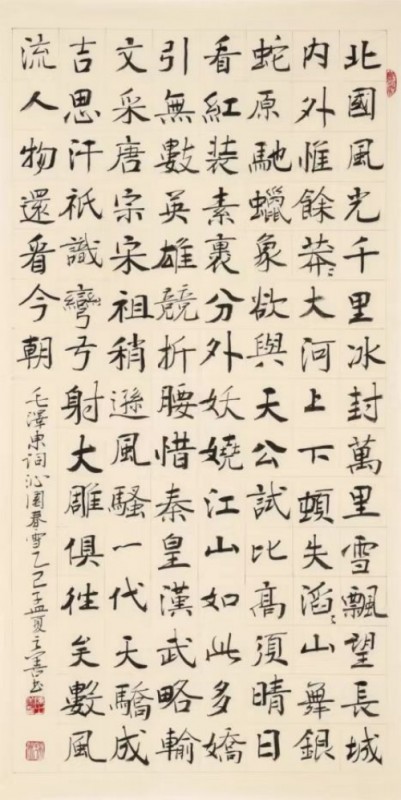 北國風光千里冰封萬里雪飄望長城
内外惟餘莽〻大河上下頓失滔〻山舞銀
蛇原馳蠟象欲與天公試比高須晴日
看紅装素裹分外妖嬈江山如此多嬌
引無數英雄競折腰惜秦皇漢武略輸
文采唐宗宋祖稍遜風騷一代天驕成
吉思汗祇識彎弓射大雕俱往矣數風
流人物還看今朝
毛澤東詞沁園春雪乙巳孟夏善書